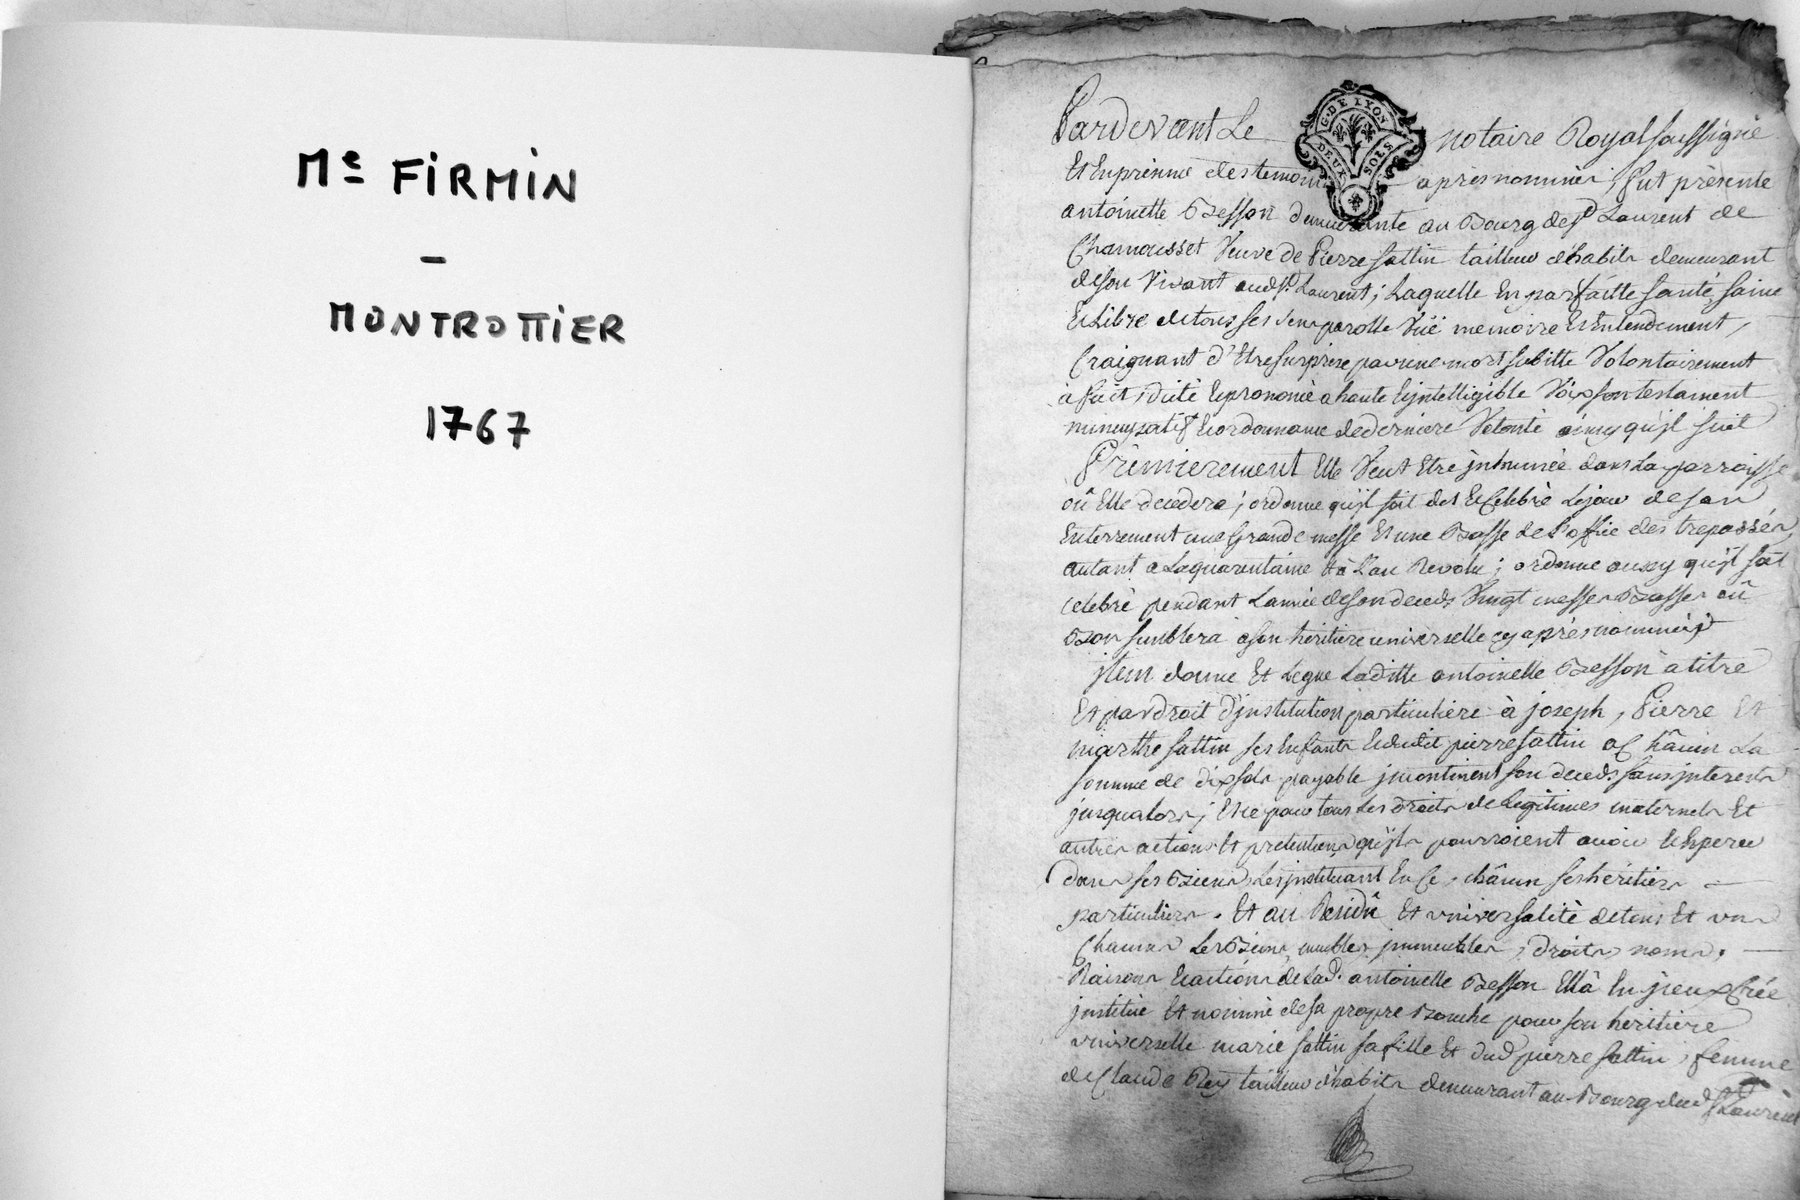 Me FIRMIN
–
MONTROTTIER
1767
G. DE LYON
DEUX SOLS
Pardevant Le notaire Royal soussigné
Et En presence des temoins après nommés, fut presente
antoinette Besson demeurante au Bourg de St Laurent de
Chamousset Veuve de Pierre fattin tailleur d'habits demeurant
de son Vivant audt St Laurent; Laquelle En parfaitte santé saine
Et Libre de tous ses sens parolle Vüe memoire Et Entendement,
Craignant d'Etre surprise par une mort subitte Volontairement
à fait, dicté Et prononcé a haute Et jntelligible Voix son testament
nuncupatif Et ordonnance de derniere Volonté ainsy qu'jl suit
Premierement Elle Veut Etre jnhumée dans La parroisse
oû Elle decedera; ordonne qu'jl soit dit Et Celebré Le jour de son
Enterrement une Grande messe Et une Basse de L'office des trepassés,
autant a La quarantaine Et à L'an Revolu; ordonne aussy qu'jl soit
celebré pendant L'année de son decéds Vingt messes Basses oû
Bon semblera a son héritiere universelle cy après nommée;
jtem donne Et Legue Laditte antoinette Besson à titre
Et par droit d'jnstitution particulière à joseph, Pierre Et
marthe fattin ses Enfants Et dudit pierre fattin a Châcun La
somme de dix sols payable jncontinent son decéds sans jnterests
jusqualors; Et ce pour tous Les droits de Légitimes maternels Et
autres actions Et pretentions qu'jls pourroient avoir Et Esperer
dans ses Biens, Les jnstituant En Ce, châcun ses héritiers
particuliers. Et au Residû Et universalité de tous Et uns
Chacuns Les Biens, meubles, jmmeubles, droits, noms,
Raisons Et actions de Lad. antoinette Besson Ellà En jceux Créé
jnstitué Et nommé de sa propre Bouche pour son heritiére
universelle marie fattin sa fille Et dud pierre fattin, femme
de Claude Rey tailleur d'habits demeurant au Bourg dud St Laurent